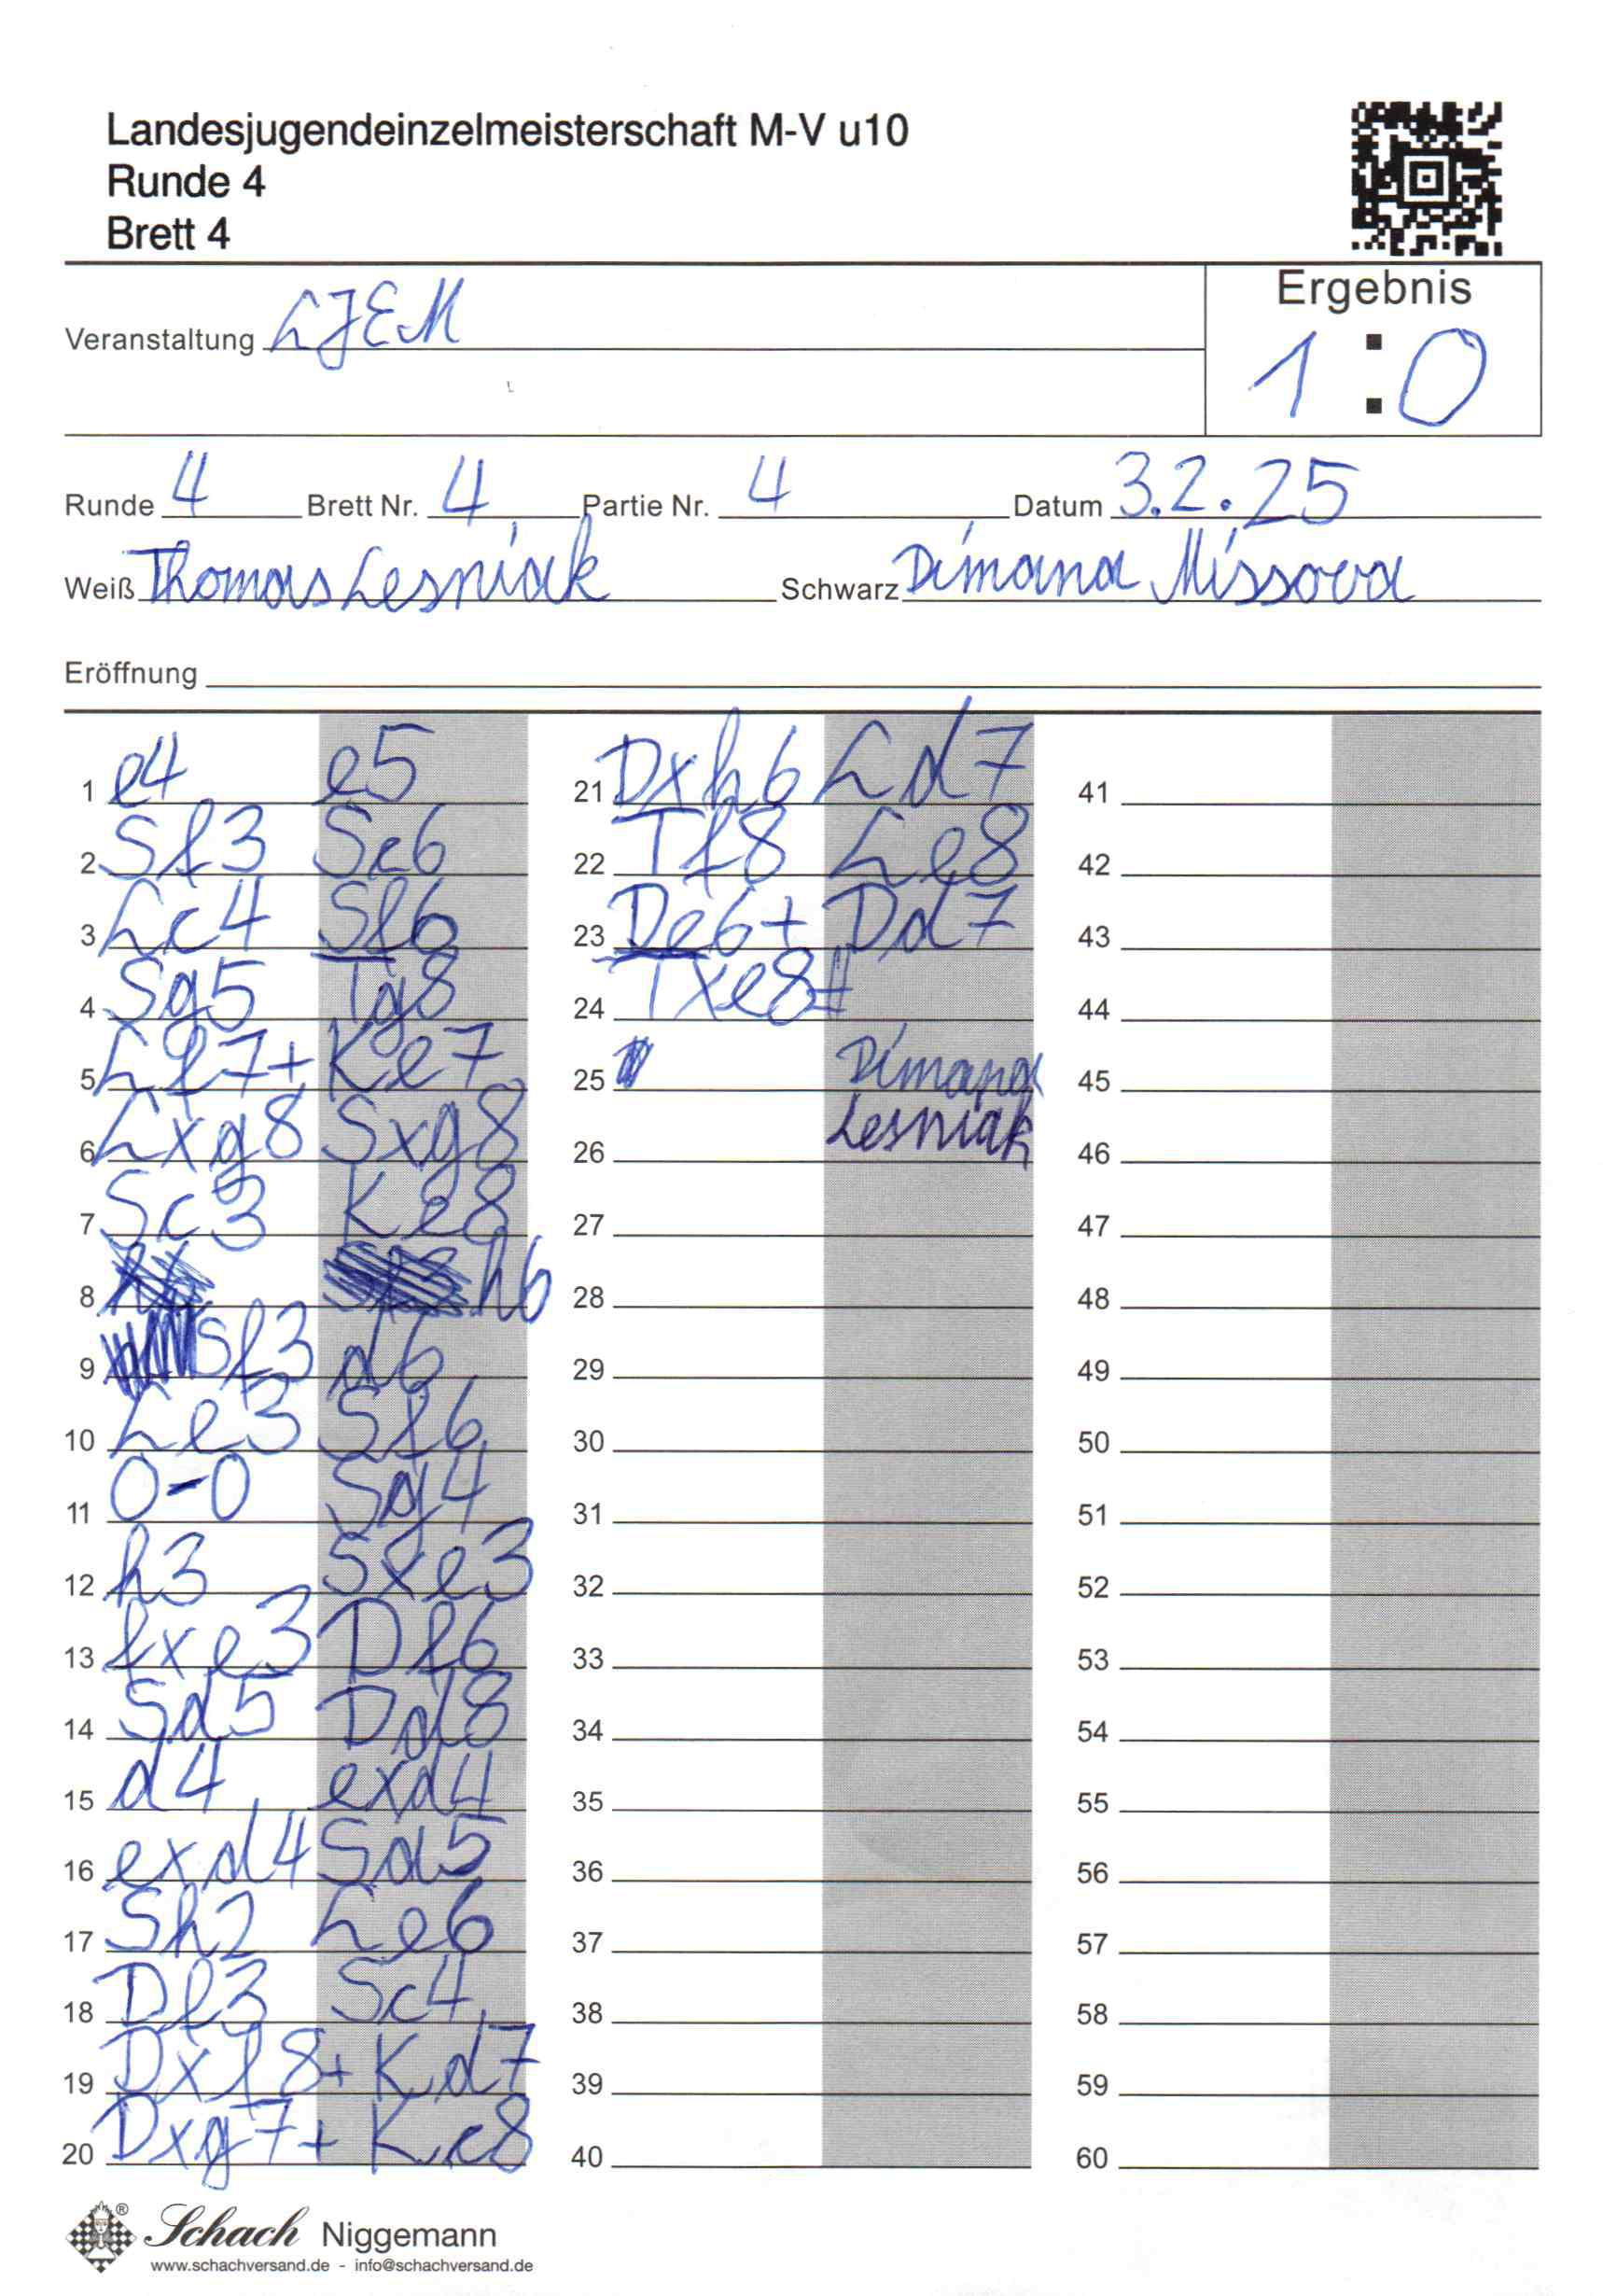 Landesjugendeinzelmeisterschaft M-V u10
Runde 4
Brett 4
Ergebnis
Veranstaltung LJEM
1 : 0
Runde 4 Brett Nr. 4 Partie Nr. 4 Datum 3.2.25
Weiß Thomas Lesniak Schwarz Dimana Missova
Eröffnung
1 e4 e5
2 Sf3 Sc6
3 Lc4 Sf6
4 Sg5 Tg8
5 Lf7+ Ke7
6 Lxg8 Sxg8
7 Sc3 Ke8
8 h6
9 Sf3 d6
10 Le3 Sf6
11 0-0 Sg4
12 h3 Sxe3
13 fxe3 Df6
14 Sd5 Dd8
15 d4 exd4
16 exd4 Sa5
17 Sh2 Le6
18 Df3 Sc4
19 Dxf8+ Kd7
20 Dxg7+ Kc8
21 Dxh6 Ld7
22 Tf8 Le8
23 De6+ Dd7
24 Txe8#
25 Dimana
26 Lesniak
27
28
29
30
31
32
33
34
35
36
37
38
39
40
41
42
43
44
45
46
47
48
49
50
51
52
53
54
55
56
57
58
59
60
Schach Niggemann
www.schachversand.de - info@schachversand.de